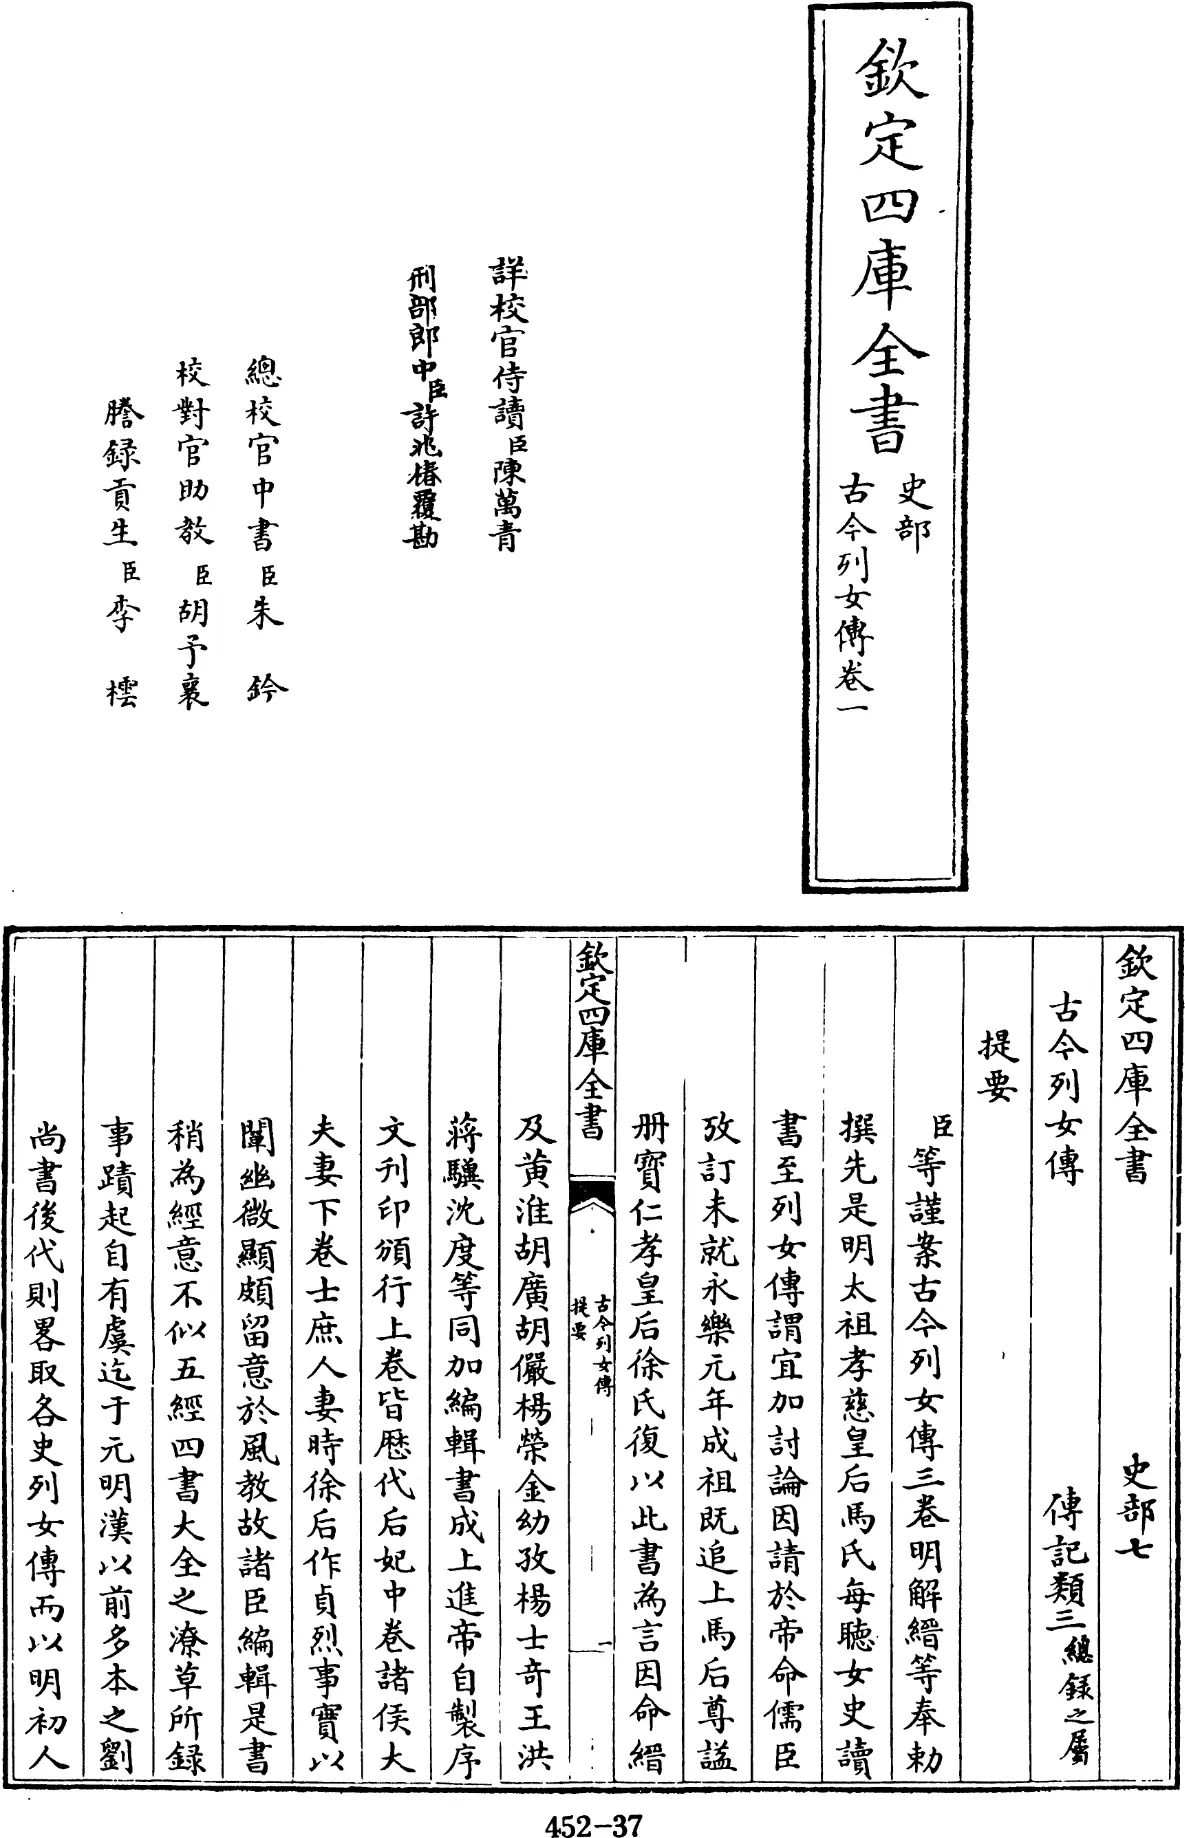 欽定四庫全書
史部
古今列女傳卷一
詳校官侍讀臣陳萬青
刑部郎中臣許兆椿覆勘
總校官中書臣朱鈐
校對官助教臣胡予襄
謄錄貢生臣李橒
欽定四庫全書 史部七
古今列女傳 傳記類三總錄之屬
提要
臣等謹案古今列女傳三卷明解縉等奉勅
撰先是明太祖孝慈皇后馬氏每聽女史讀
書至列女傳謂宜加討論因請於帝命儒臣
攷訂未就永樂元年成祖既追上馬后尊謚
册寳仁孝皇后徐氏復以此書為言因命縉
欽定四庫全書
古今列女傳
提要
一
及黄淮胡廣胡儼楊榮金幼孜楊士奇王洪
蔣驥沈度等同加編輯書成上進帝自製序
文刋印頒行上卷皆歴代后妃中卷諸侯大
夫妻下卷士庶人妻時徐后作貞烈事實以
闡幽微顯頗留意於風教故諸臣編輯是書
稍為經意不似五經四書大全之潦草所録
事蹟起自有虞迄于元明漢以前多本之劉
尚書後代則畧取各史列女傳而以明初人
452-37